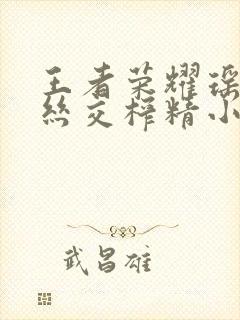 王者荣耀瑶
丝交榨精小
武昌雄